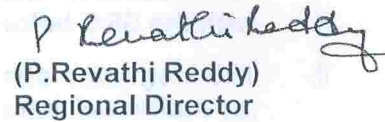 P Revathi Reddy
(P.Revathi Reddy)
Regional Director